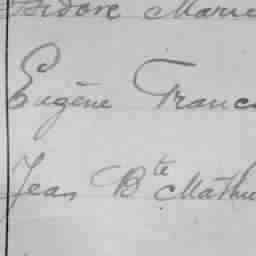 Isidore Marie
Eugène Franc
Jean Bte Mathu